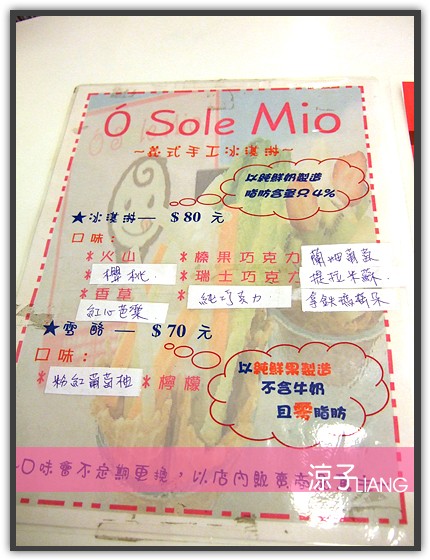 Ó Sole Mio
~義式手工冰淇淋~
以純鮮奶製造
脂肪含量只4%
★冰淇淋— $80元
口味:
*火山 *榛果巧克力 蘭姆葡萄
*櫻桃 *瑞士巧克力 提拉米蘇
*香草 *純巧克力 拿鐵瑪琪朵
紅心芭樂
★雪酪— $70元
口味:
*粉紅葡萄柚 *檸檬
以純鮮果製造
不含牛奶
且零脂肪
~口味會不定期更換,以店內販賣
涼子LIANG